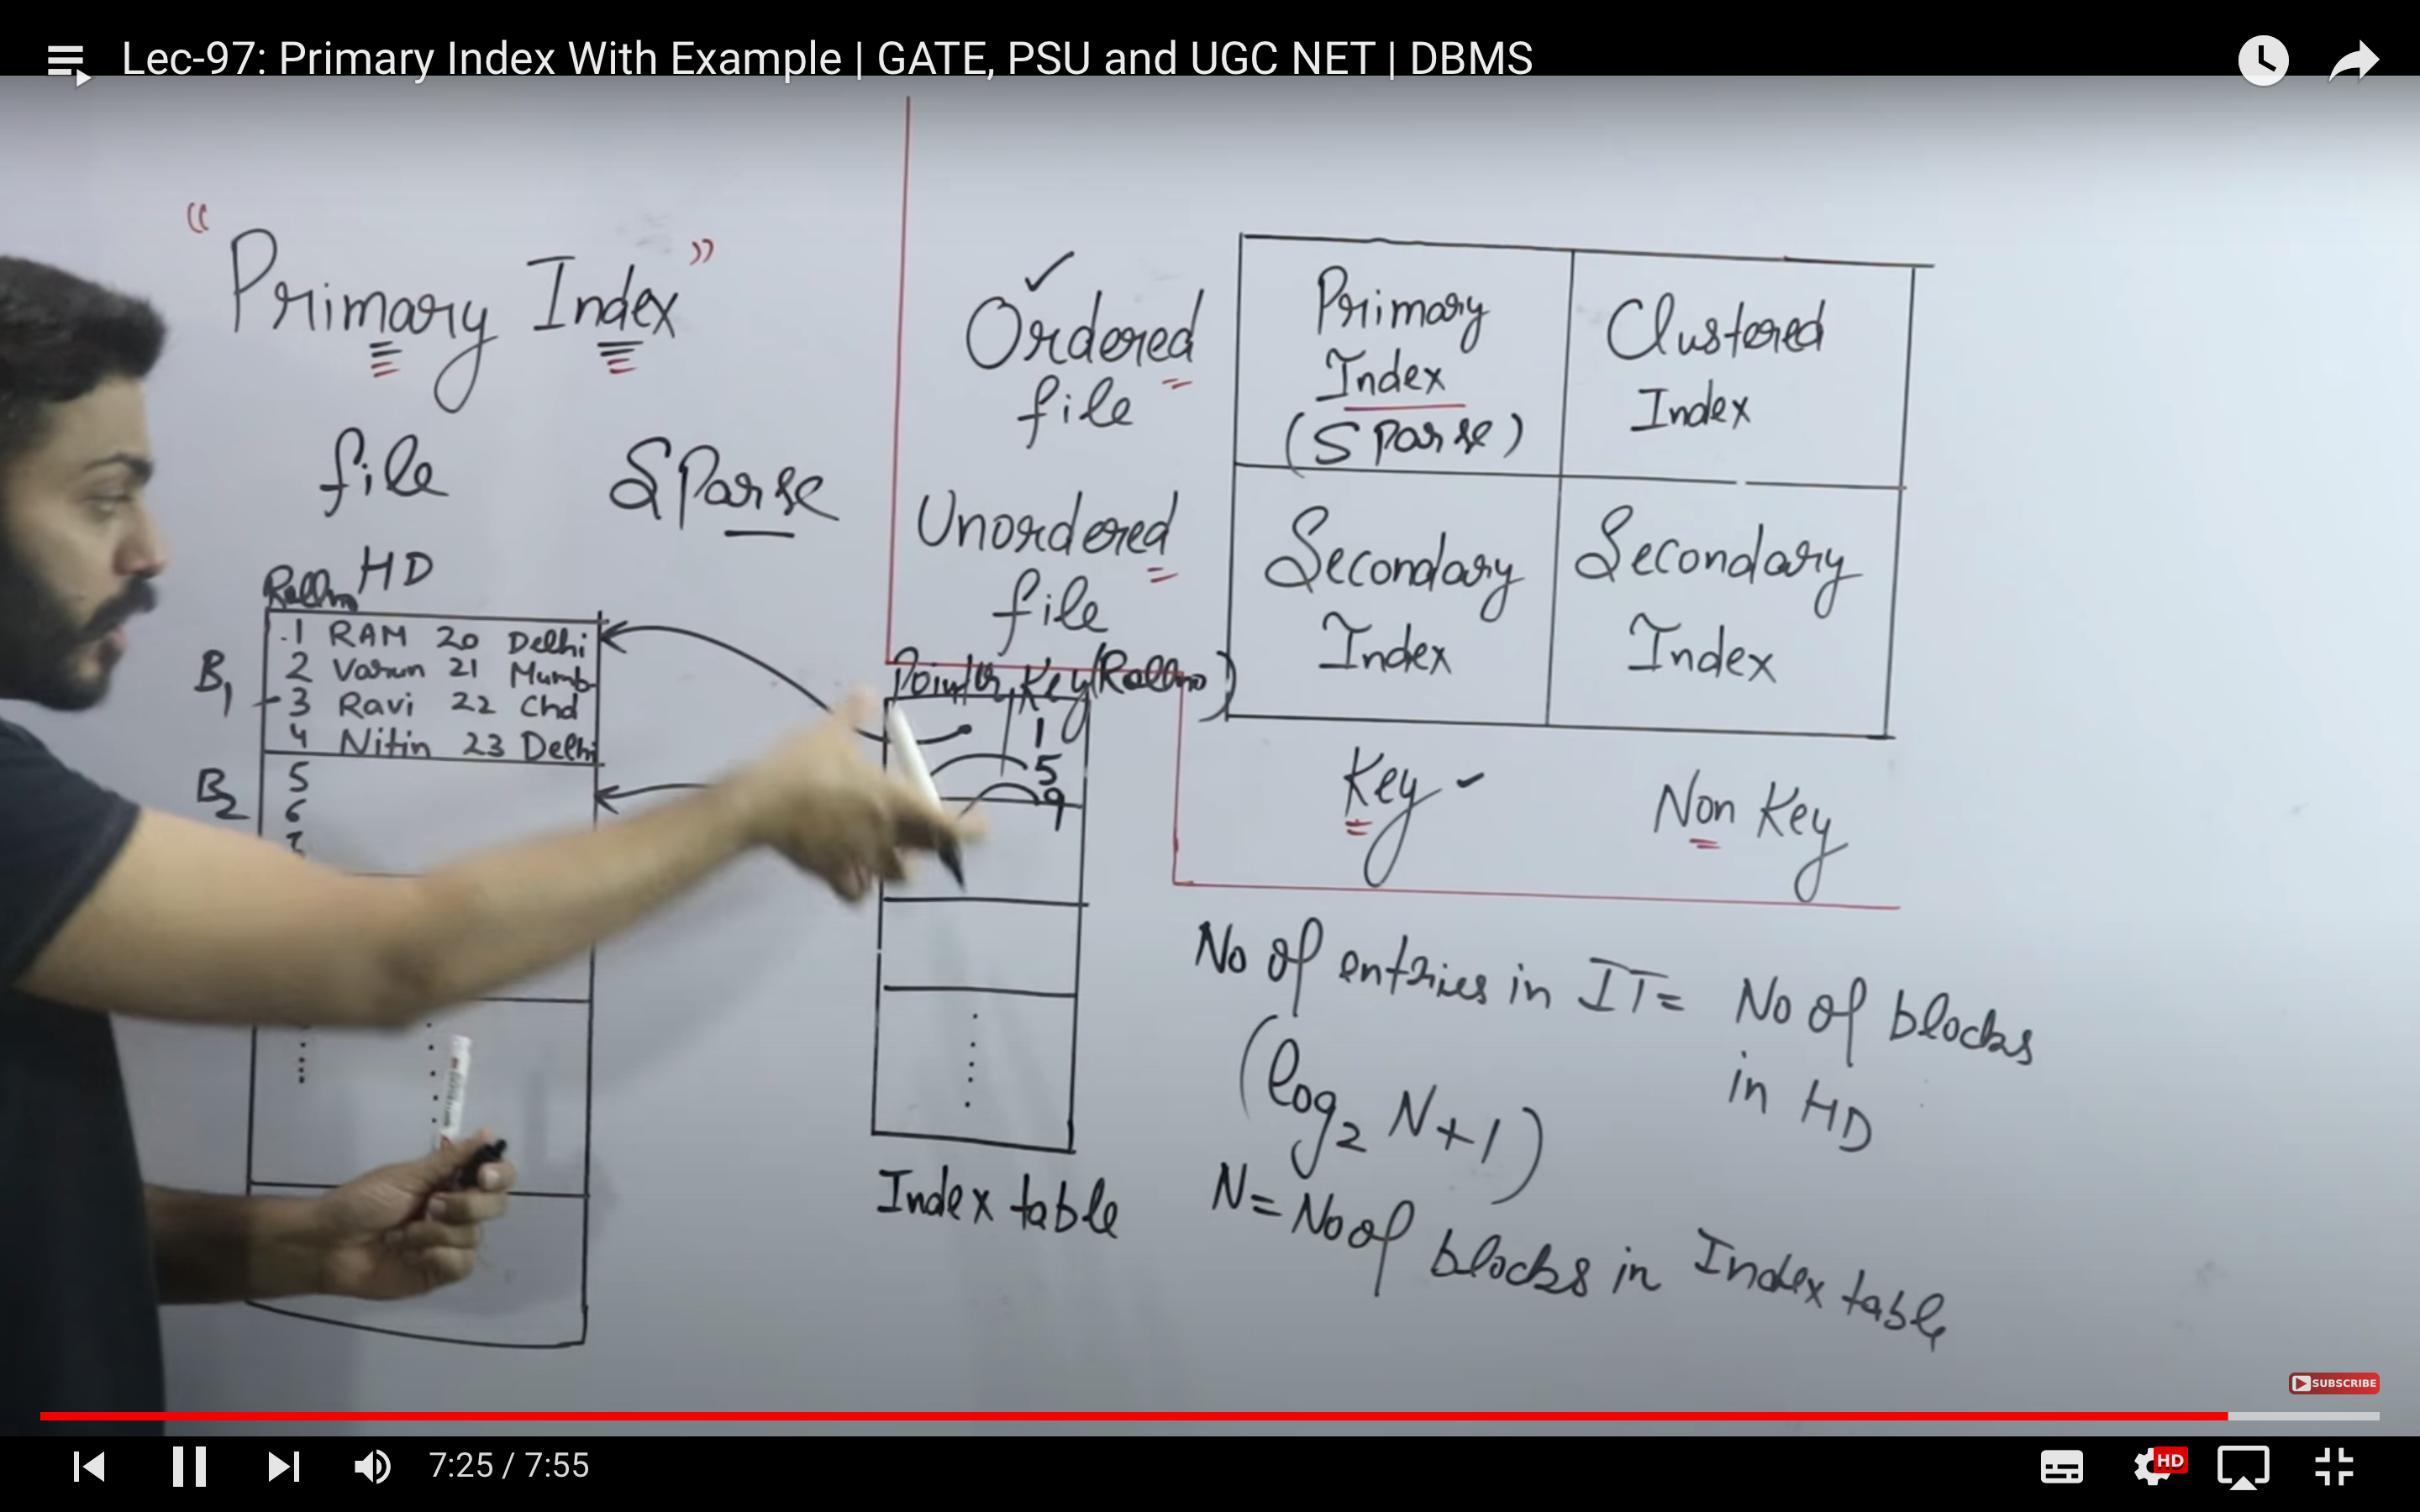 Lec-97: Primary Index With Example | GATE, PSU and UGC NET | DBMS
"Primary Index"
file Sparse
HD
Rollno
1 RAM 20 Delhi
2 Varun 21 Mumb
3 Ravi 22 Chd
4 Nitin 23 Delhi
B1
5
6
B2
Pointer Key(Rollno)
1
5
9
Index table
Ordered
file
Unordered
file
Primary
Index
(Sparse)
Clustered
Index
Secondary
Index
Secondary
Index
Key
Non Key
No of entries in IT = No of blocks
in HD
(log2 N+1)
N = No of blocks in Index table
SUBSCRIBE
7:25 / 7:55
HD